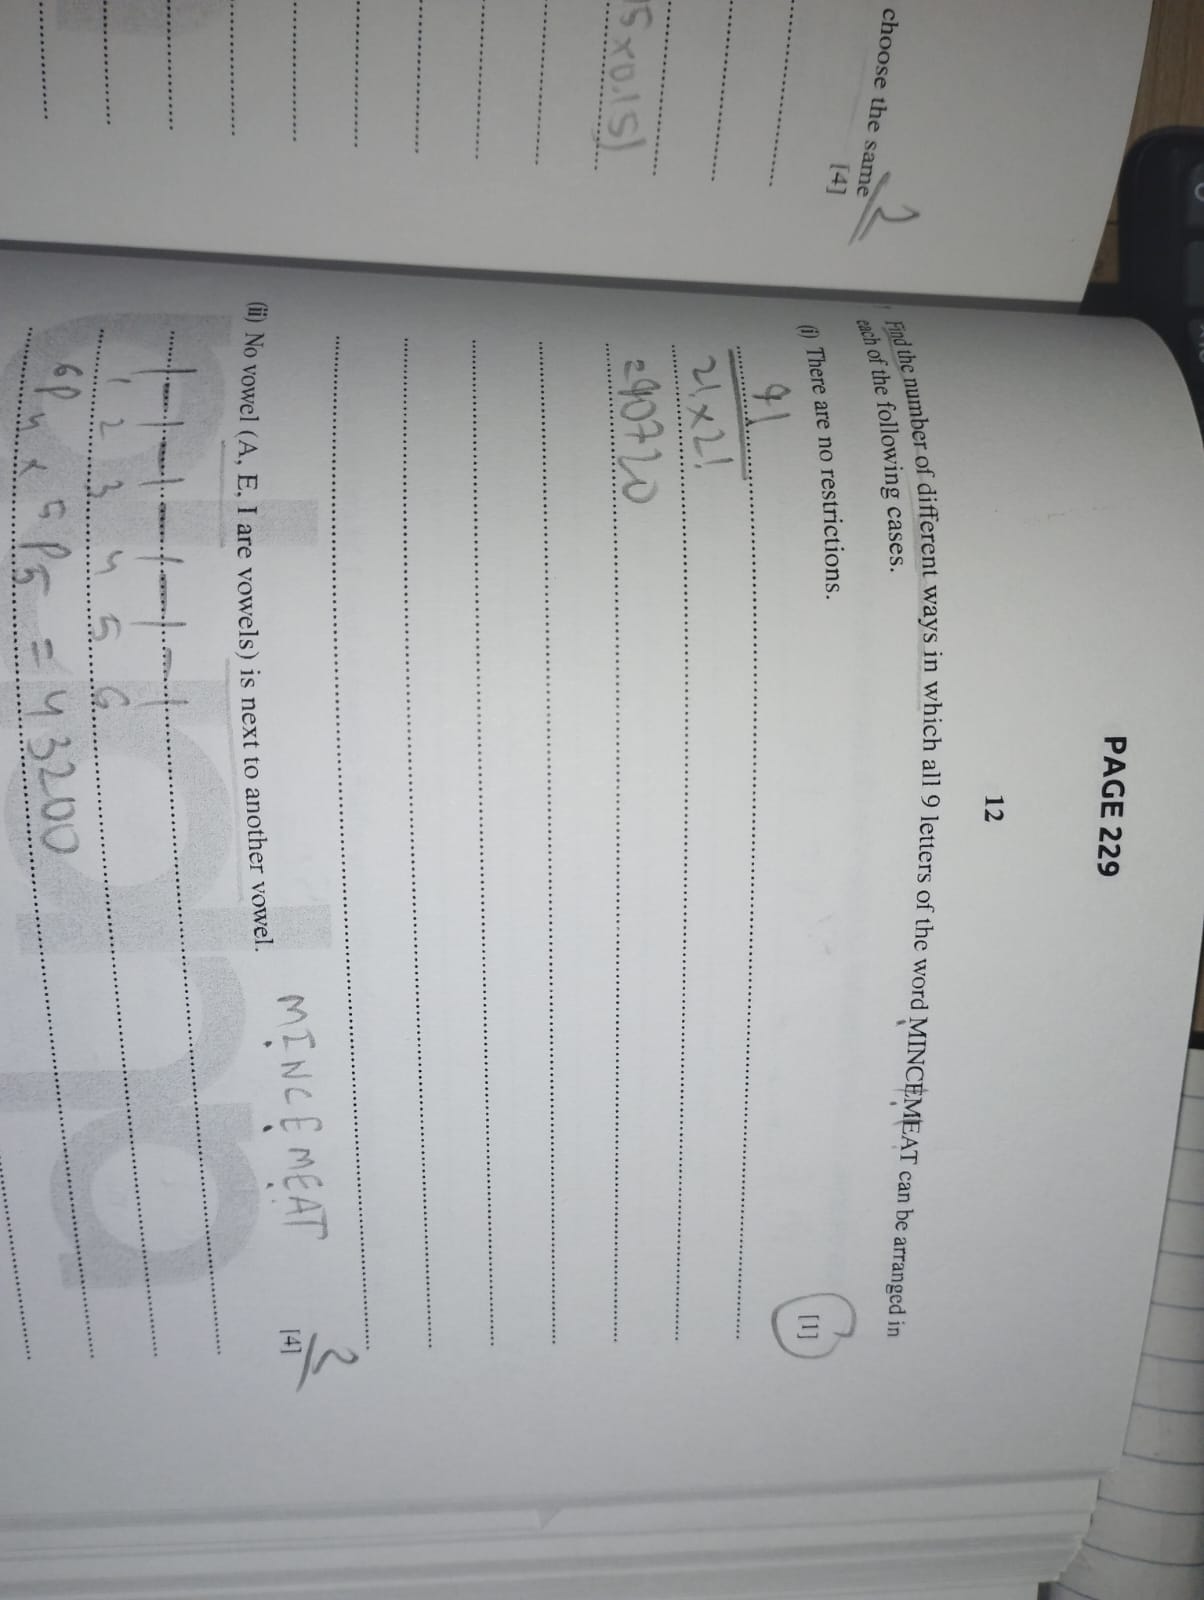 PAGE 229
12
choose the same
2
[4]
5 x0.15)
Find the number of different ways in which all 9 letters of the word MINCEMEAT can be arranged in
each of the following cases.
(i) There are no restrictions.
[1]
9!
2! x 2!
= 90720
MINCEMEAT
2
[4]
(ii) No vowel (A, E, I are vowels) is next to another vowel.
1 2 3 4 5 6
6P4 x 5P5 = 43200